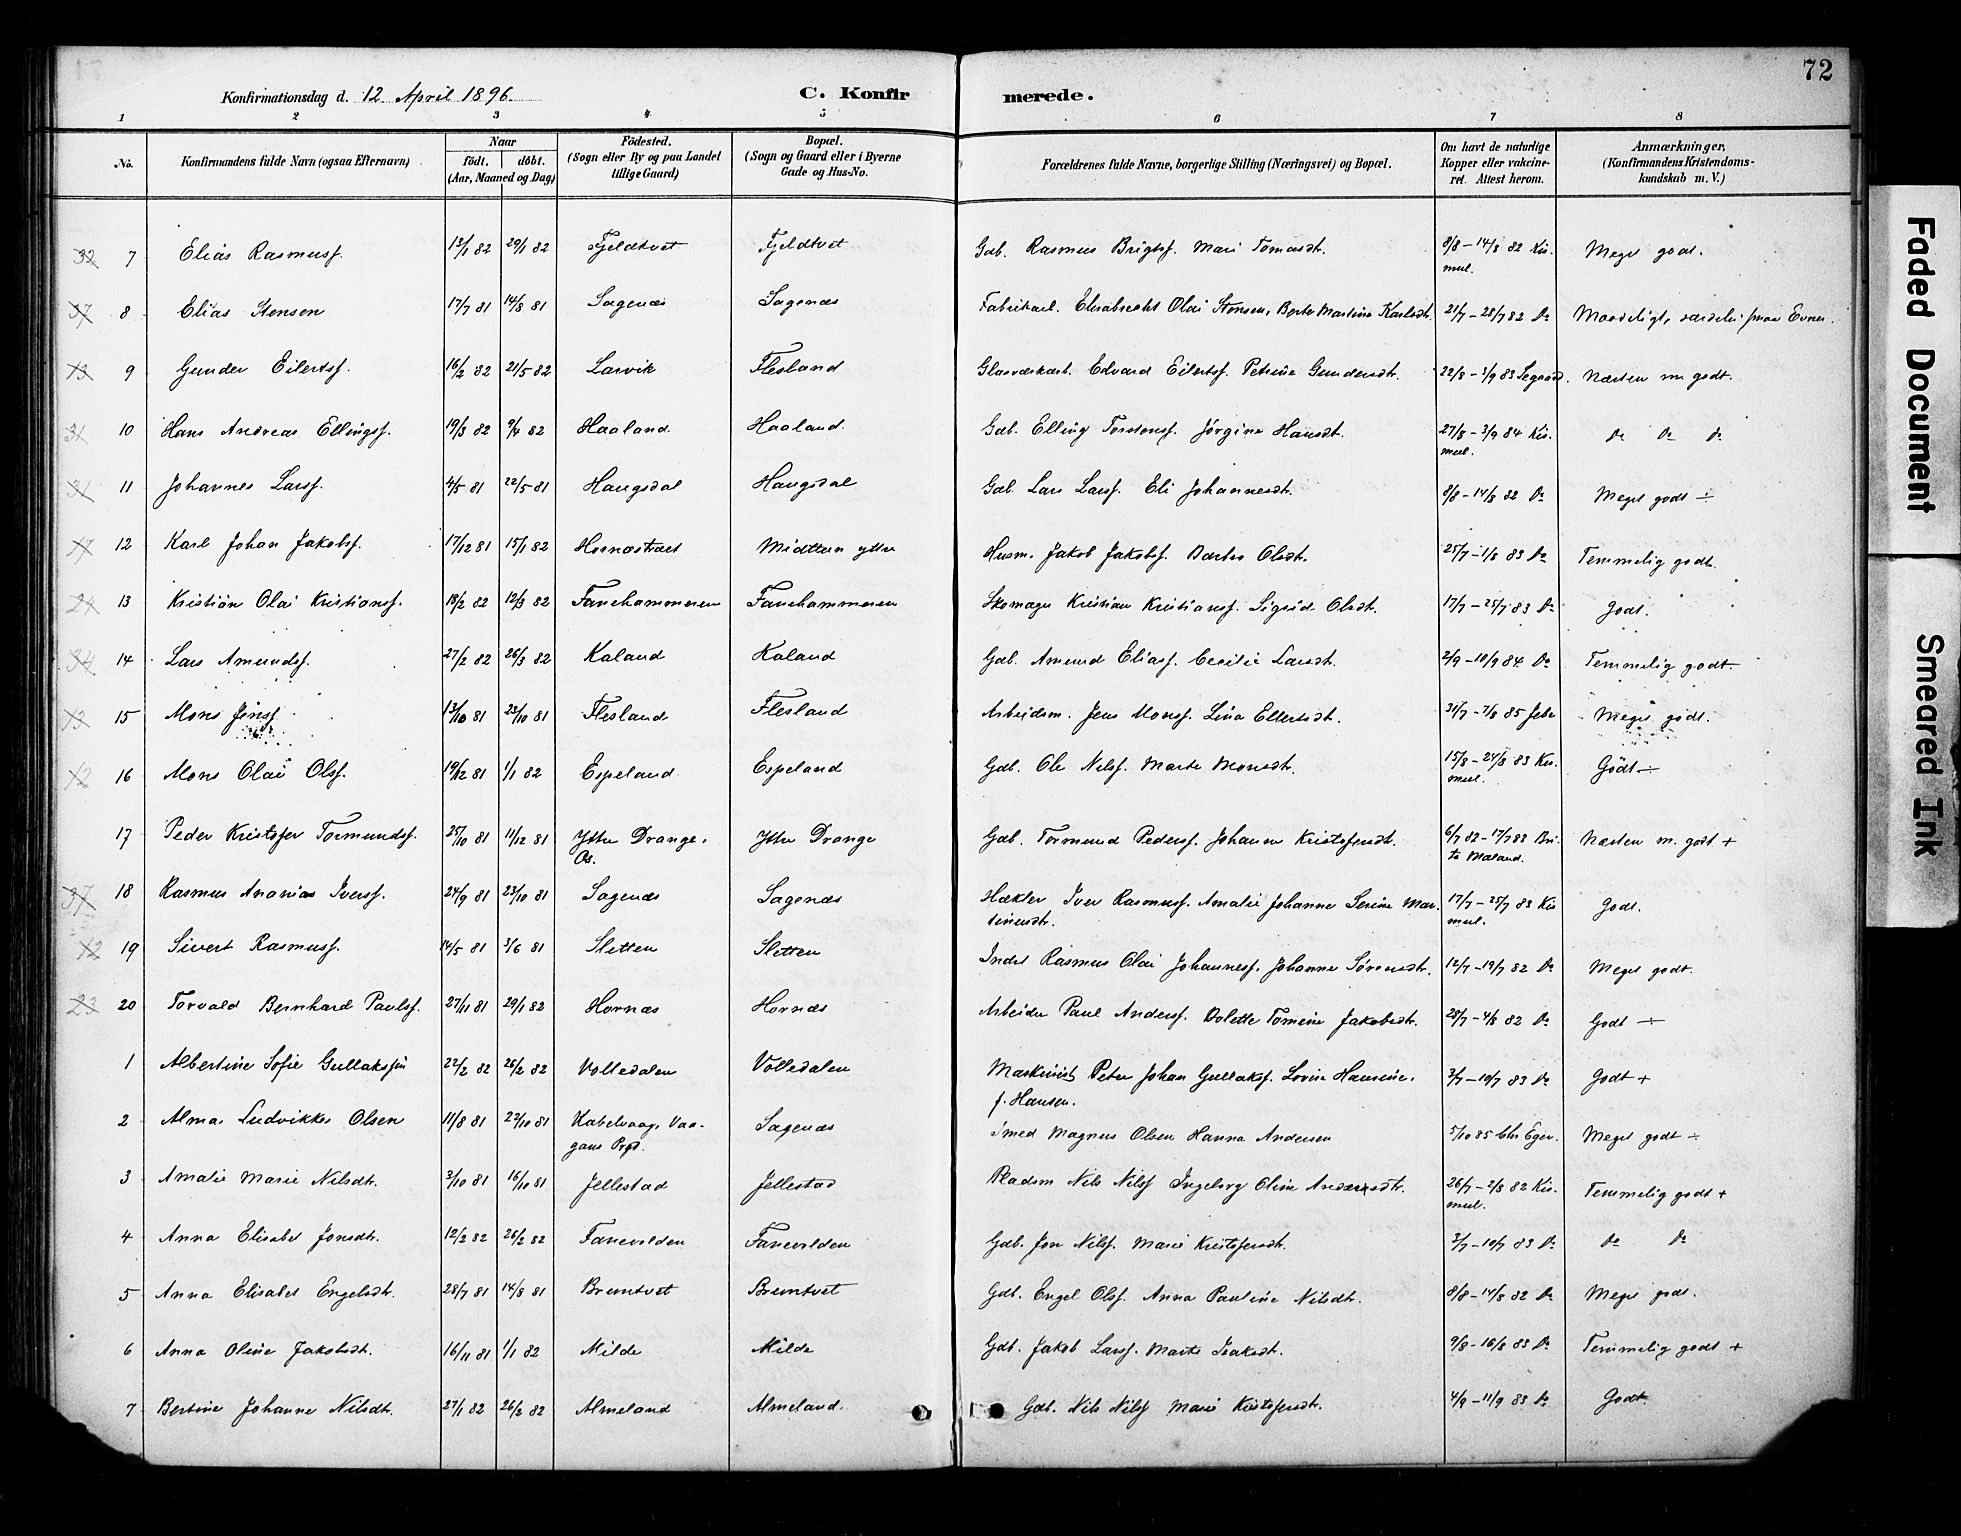 72
Konfirmationsdag d. 12 April 1896. C. Konfirmerede.
1 2 3 4 5 6 7 8
No. Konfirmandens fulde Navn (ogsaa Efternavn) Naar födt. döbt. (Aar, Maaned og Dag) Födested. (Sogn eller By og paa Landet tillige Gaard) Bopæl. (Sogn og Gaard eller i Byerne Gade og Hus-No. Forældrenes fulde Navne, borgerlige Stilling (Næringsvei) og Bopæl. Om havt de naturlige Kopper eller vakcineret. Attest herom. Anmærkninger, (Konfirmandens Kristendomskundskab m. V.)
32 7 Elias Rasmusf. 13/1 82 29/1 82 Fjeldtvet Fjeldtvet Gdb. Rasmus Brigtsf. Mari Tomasdt. 8/8 – 14/8 82 Kismul. Meget godt.
37 8 Elias Stensen 17/7 81 14/8 81 Sagenæs Sagenæs Fabrikarb. Elisabrecht Olai Stensen, Berte Martine Karlsdt. 21/7 – 28/7 82 Do Maadeligt, smaa Evner.
13 9 Gunder Eilertsf. 16/2 82 21/5 82 Larvik Flesland Glasværkarb. Edvard Eilertsf. Petrine Gundersdt. 22/8 – 1/9 83 Næsten m godt.
31 10 Hans Andreas Ellingsf. 19/3 82 9/4 82 Haaland Haaland Gdb. Elling Torstensf. Jörgine Hansdt. 27/8 – 3/9 84 Kismul. Do Do Do
31 11 Johannes Larsf. 4/5 81 22/5 81 Haugsdal Haugsdal Gdb. Lars Larsf. Eli Johannesdt. 8/8 – 14/8 82 Do Meget godt ÷
17 12 Karl Johan Jakobsf. 17/12 81 15/1 82 Hornæstræet Midttun ytre Husm. Jakob Jakobsf. Barbro Olsdt. 25/7 – 1/8 83 Do Temmelig godt.
24 13 Kristian Olai Kristiansf. 18/2 82 12/3 82 Fanehammeren Fanehammeren Skomager Kristian Kristiansf. Sigrid Olsdt. 17/7 – 25/7 83 Do Godt.
34 14 Lars Amundsf. 27/2 82 26/3 82 Kaland Kaland Gdb. Amund Eliasf. Cecilie Larsdt. 2/9 – 10/9 84 Do Temmelig godt
13 15 Mons Jensf. 13/10 81 23/10 81 Flesland Flesland Arbeidsm. Jens Monsf. Lina Ellertsdt. 31/7 – 7/8 85 Meget godt.
12 16 Mons Olai Olsf. 19/12 81 1/1 82 Espeland Espeland Gdb. Ole Nilsf. Marte Monsdt. 15/8 – 24/8 83 Kismul. Godt ÷
17 Peder Kristofer Tormundsf. 25/10 81 11/12 81 Ytre Drange, Os. Ytre Drange Gdb. Tormund Pedersf. Johanne Kristofersdt. 6/7 82 – 17/7 83 Brite Maland. Næsten m. godt +
37 18 Rasmus Ananias Iversf. 24/9 81 23/10 81 Sagenæs Sagenæs Hækler Iver Rasmusf. Amalie Johanne Serine Martinusdt. 17/7 – 25/7 83 Kismul. Godt.
12 19 Sivert Rasmusf. 14/5 81 3/6 81 Sletten Sletten Inds Rasmus Olai Johannesf. Johanne Sörensdt. 12/7 – 19/7 82 Do Meget godt.
23 20 Torvald Bernhard Paulsf. 27/11 81 29/1 82 Hornæs Hornæs Arbeider Paul Andersf. Bolette Tomine Jakobsdt. 28/7 – 4/8 82 Do Godt ÷
1 Albertine Sofie Gullaksen 22/2 82 26/2 82 Volledalen Volledalen Maskinist Peter Johan Gullaksf. Lovise Hansine, f. Hansen. 3/7 – 10/7 83 Do Godt +
2 Alma Ludvikke Olsen 11/8 81 22/10 81 Kabelvaag, Vaagans Prgd. Sagenæs Smed Magnus Olsen Hanna Andersen 5/10 85 Chr Eger. Meget godt ÷
3 Amalie Marie Nilsdt. 3/10 81 16/10 81 Jellestad Jellestad Pladsm Nils Nilsf Ingeborg Oline Andersdt. 26/7 – 2/8 82 Kismul. Temmelig godt +
4 Anna Elisabet Jonsdt. 12/2 82 26/2 82 Fanevolden Fanevolden Gdb. Jon Nilsf. Marie Kristofersdt. 3/7 – 10/7 83 Do Do Do
5 Anna Elisabet Engelsdt. 28/7 81 14/8 81 Bruntvet Bruntvet Gdb. Engel Olsf. Anna Pauline Nilsdt. 8/8 – 14/8 82 Do Meget godt.
6 Anna Oline Jakobsdt. 16/11 81 1/1 82 Milde Milde Gdb. Jakob Larsf. Marte Isaksdt. 9/8 – 16/8 83 Do Temmelig godt +
7 Bertine Johanne Nilsdt. 27/1 82 26/2 82 Almeland Almeland. Gdb. Nils Nilsf Marie Kristofersdt. 4/9 – 11/9 83 Do Godt.
Faded Document
Smeared Ink